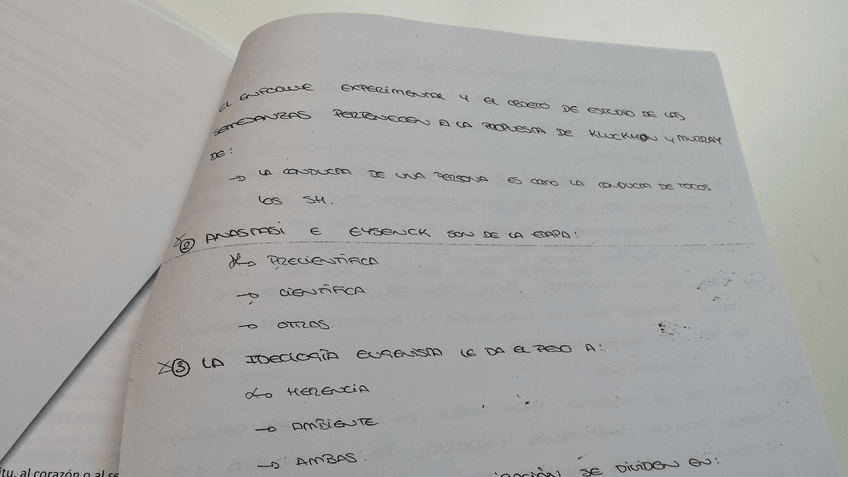 EL ENFOQUE EXPERIMENTAL Y EL OBJETO DE ESTUDIO DE LAS
SEMEJANZAS PERTENECEN A LA PROPUESTA DE KLUCKHON Y MURRAY
DE:
→ LA CONDUCTA DE UNA PERSONA ES COMO LA CONDUCTA DE TODOS
LOS SH.
X② ANASTASI E EYSENCK SON DE LA ETAPA:
X→ PRECIENTÍFICA
→ CIENTÍFICA
→ OTRAS.
X③ LA IDEOLOGÍA EUGENISTA LE DA EL PESO A:
X→ HERENCIA
→ AMBIENTE
→ AMBAS.
SE DIVIDEN EN:
tu, al corazón o al se